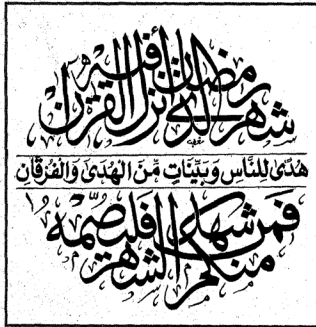 شهر رمضان الذي أنزل فيه القرآن
هُدًى لِلنَّاسِ وَبَيِّنَاتٍ مِّنَ الْهُدَىٰ وَالْفُرْقَانِ
فمن شهد منكم الشهر فليصمه